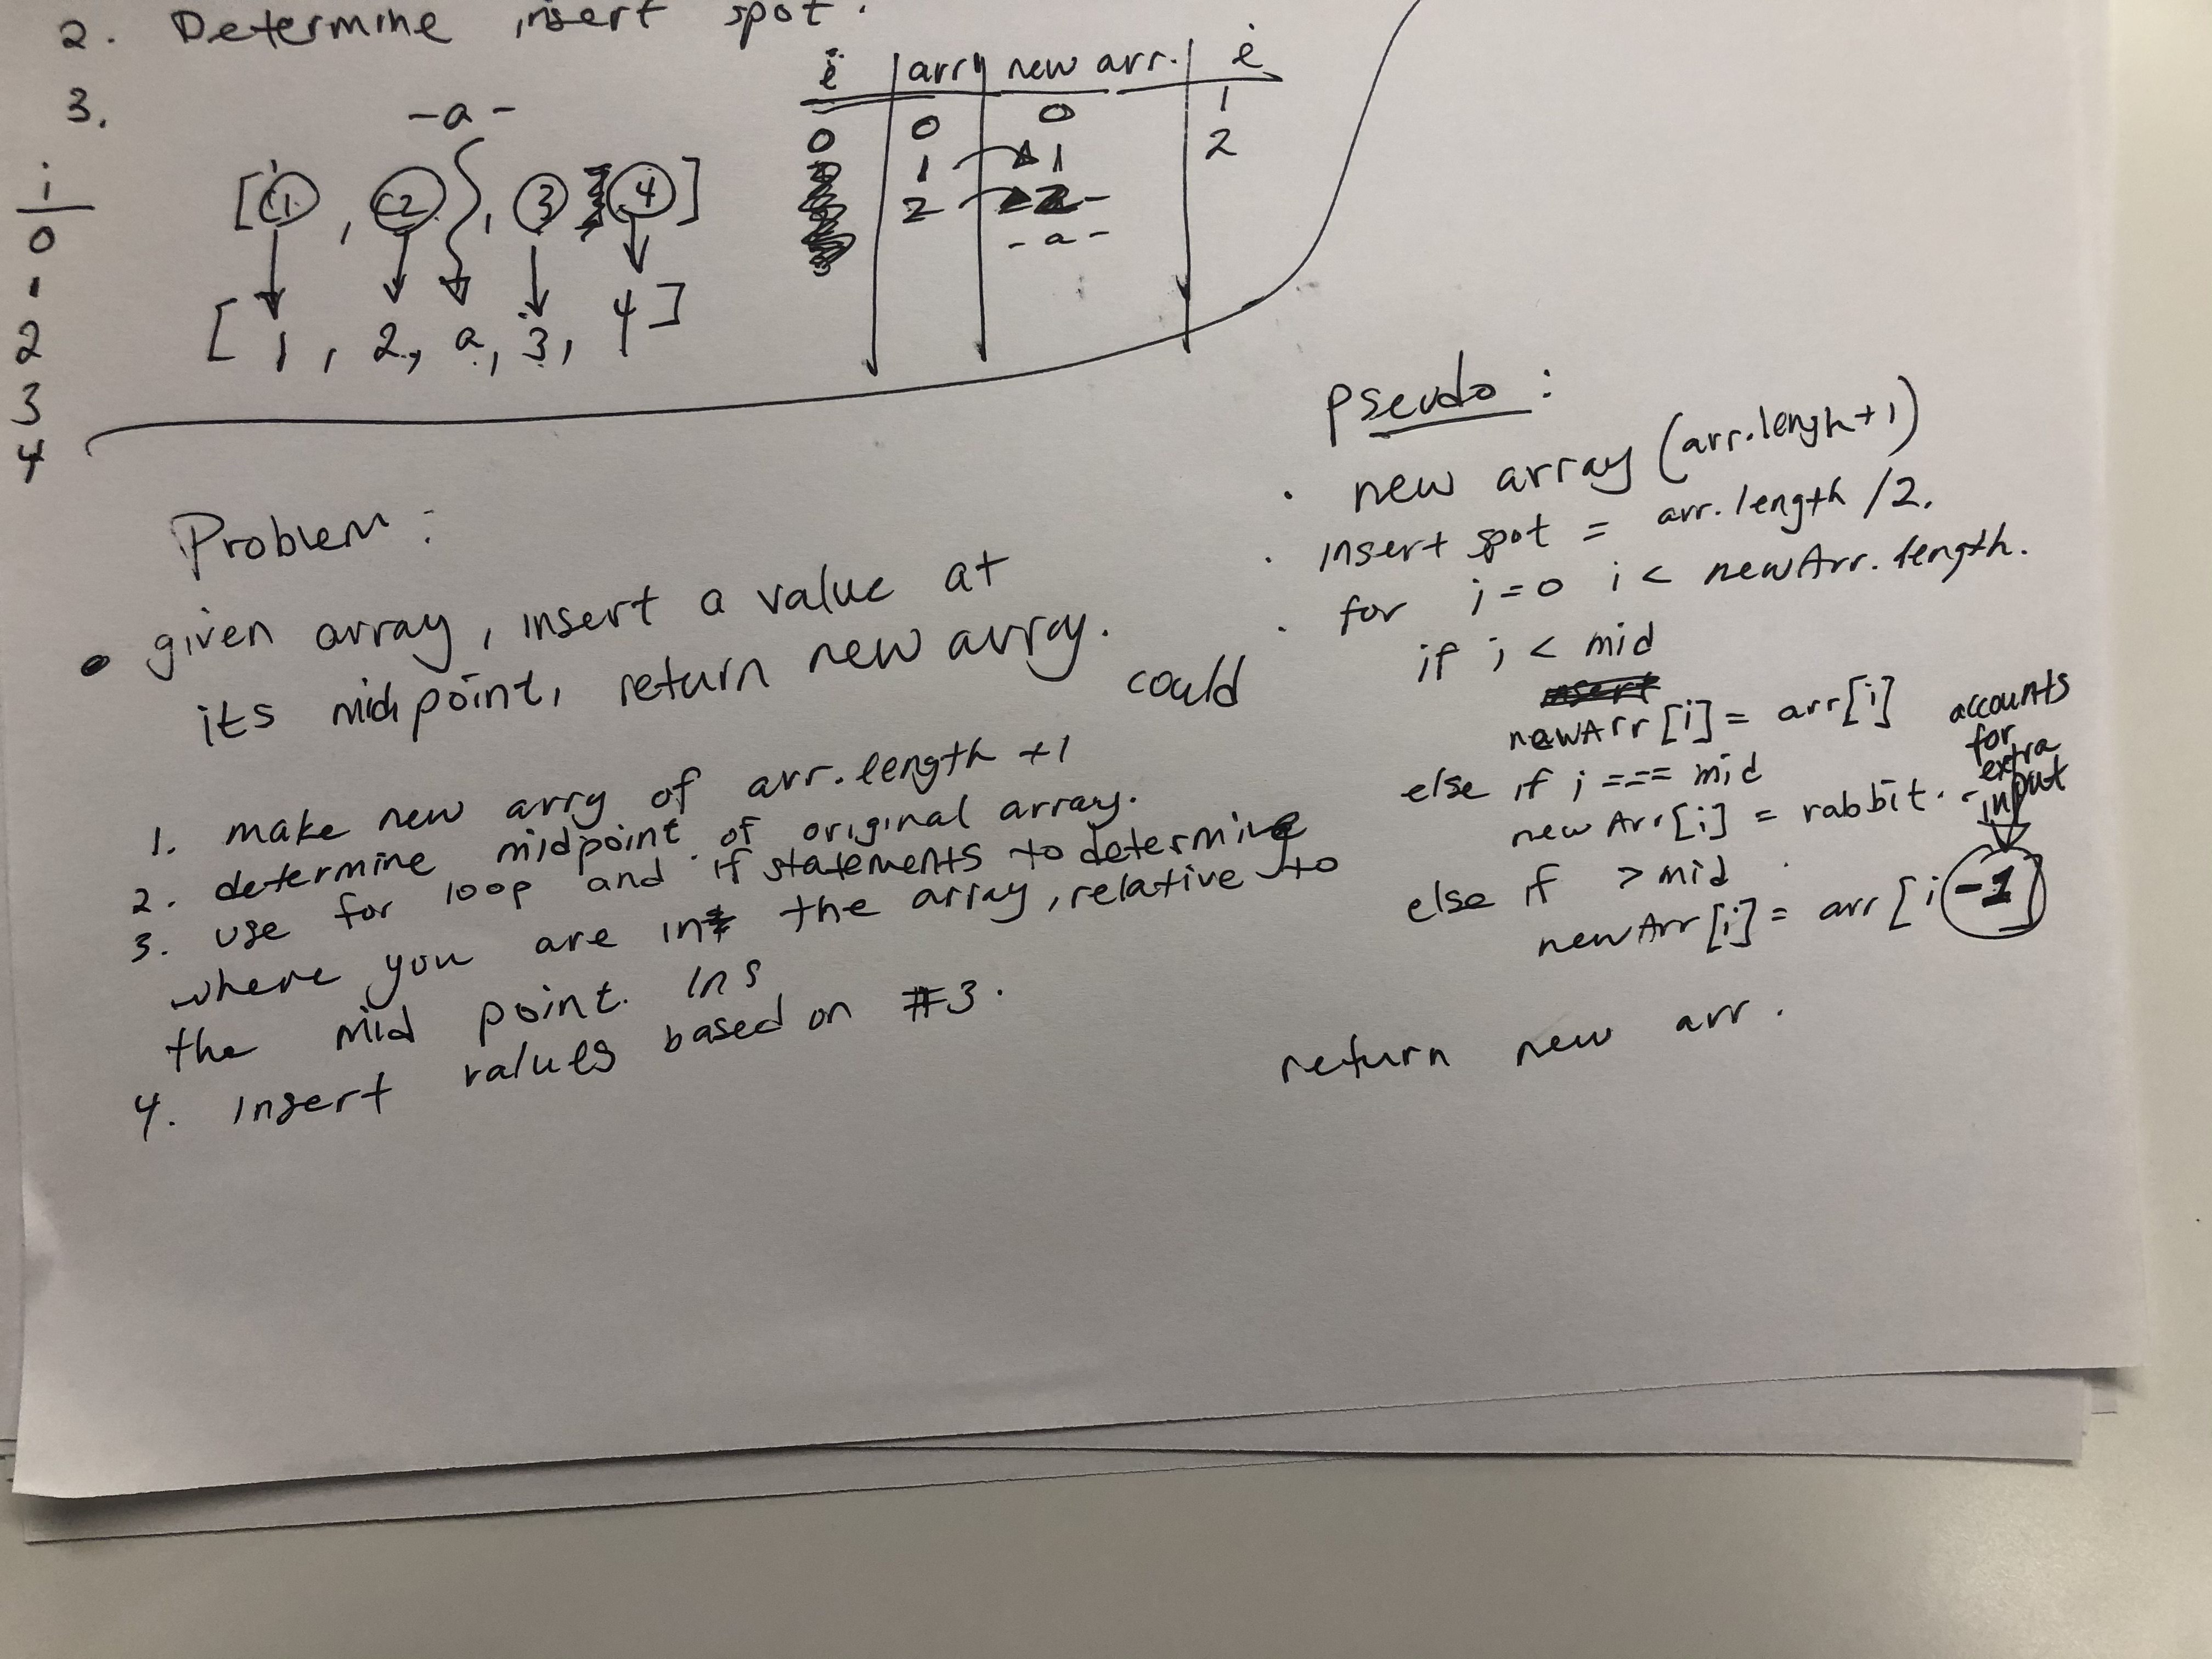 2. Determine insert spot.
3.
-a-
i
0
1
2
3
4
[1, 2, 3, 4]
[1, 2, a, 3, 4]
i arry new arr. i
0 0 0 1
1 1 2
2 2-
-a-
Problem:
given array, insert a value at
its midpoint, return new array.
could
1. make new arry of arr.length +1
2. determine midpoint of original array.
3. use for loop and if statements to determine
where you are in the array, relative to
the mid point. Ins
4. Insert values based on #3.
pseudo:
· new array (arr.lengh+1)
· insert spot = arr.length /2.
· for i=0 i < newArr.length.
if i < mid
insert
newArr[i] = arr[i]
else if i === mid
newArr[i] = rabbit.
else if > mid
newArr[i] = arr[i-1]
accounts
for
extra
-input
return new arr.